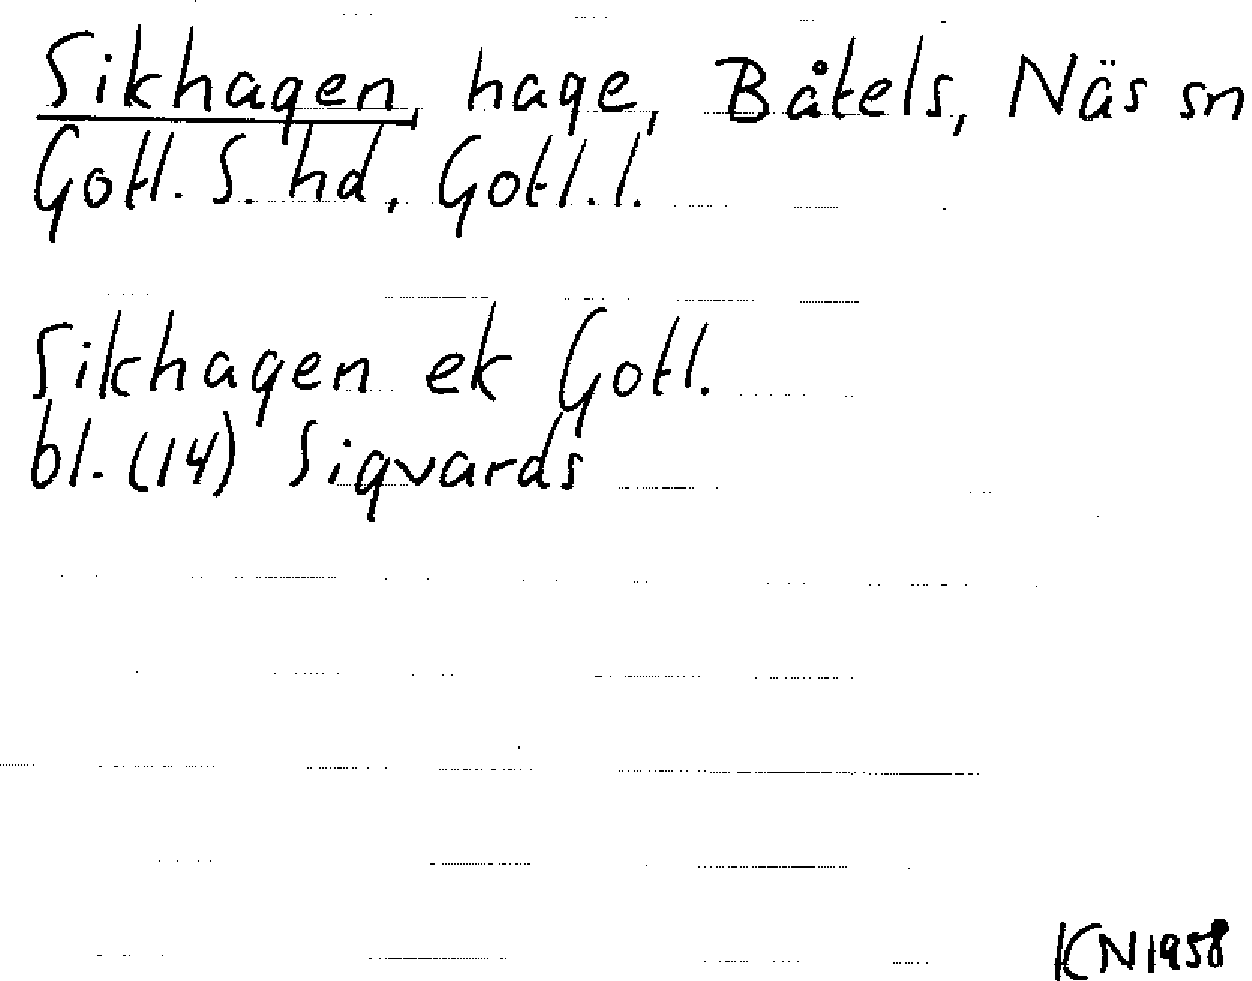 Sikhagen, hage, Båtels, Näs sn
Gotl. S. hd, Gotl. l.
Sikhagen ek Gotl.
bl. (14) Sigvards
KN 1958